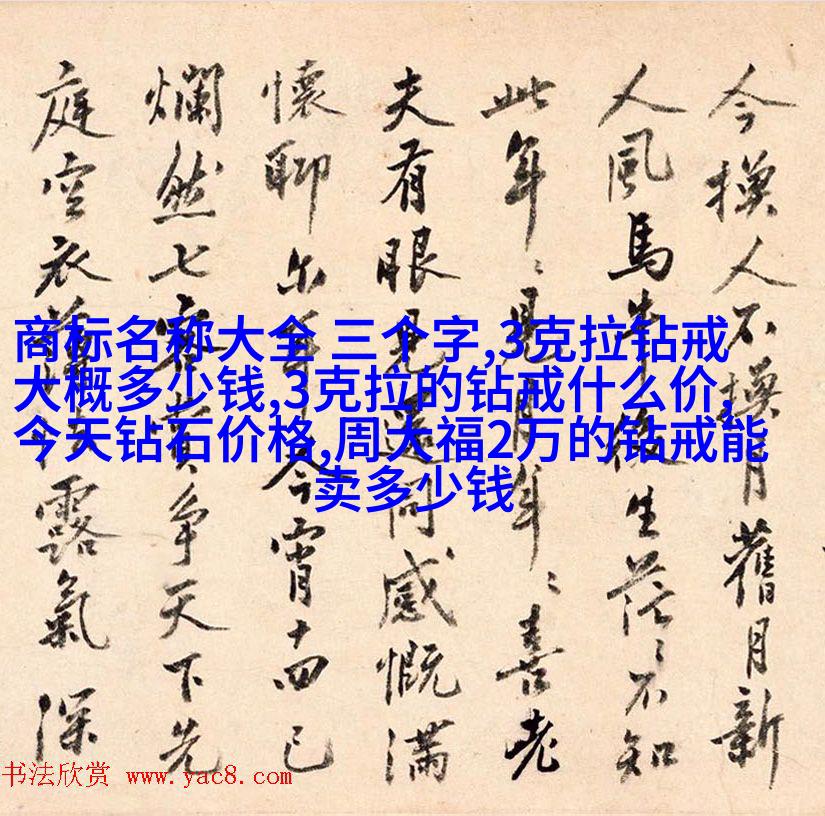 今換人不換月舊月新
人風馬牛生茫〻不知
此年〻見月年〻喜老
夫有眼見還同感慨滿
懷聊尔今宵十四已
爛然七客賁爭天下先
庭空衣露氣深
商标名称大全 三个字,3克拉钻戒
大概多少钱,3克拉的钻戒什么价,
今天钻石价格,周大福2万的钻戒能
卖多少钱
书法欣赏 www.yac8.com